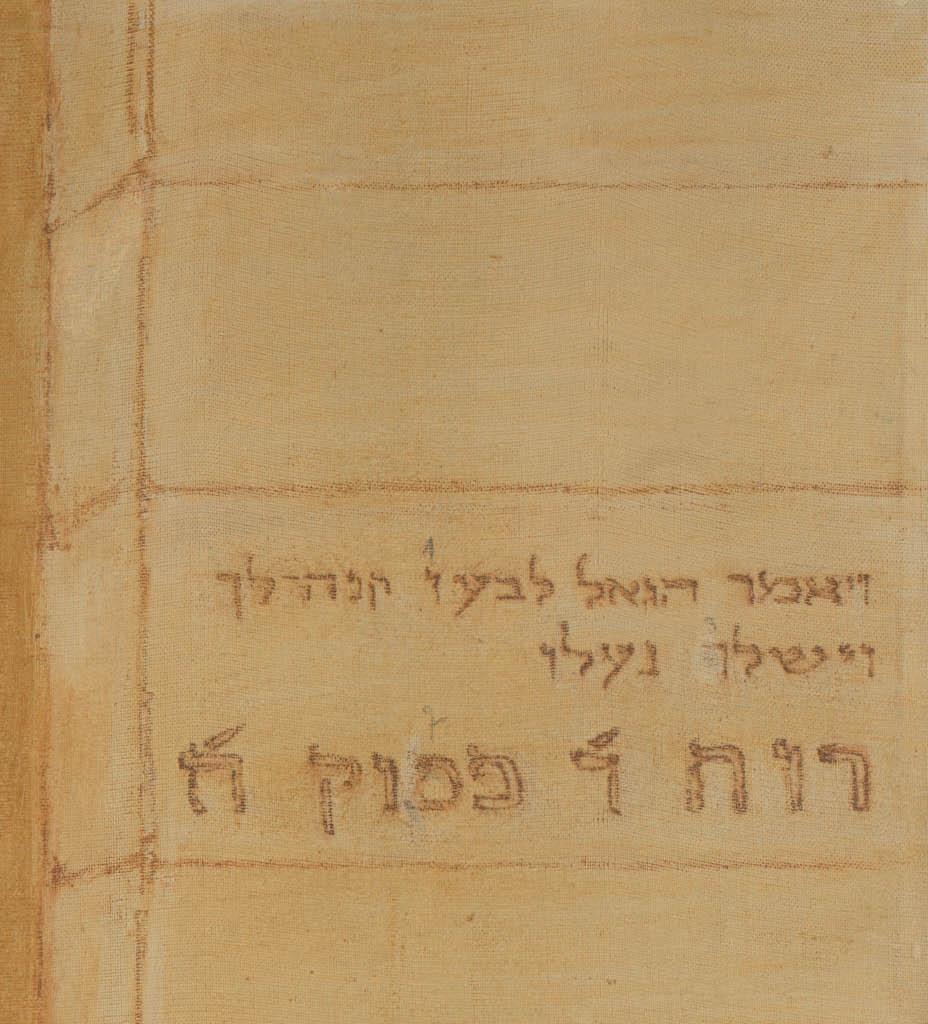 ויאמר הגאל לבעז קנה לך
וישלף נעלו
רות ד׳ פסוק ח׳